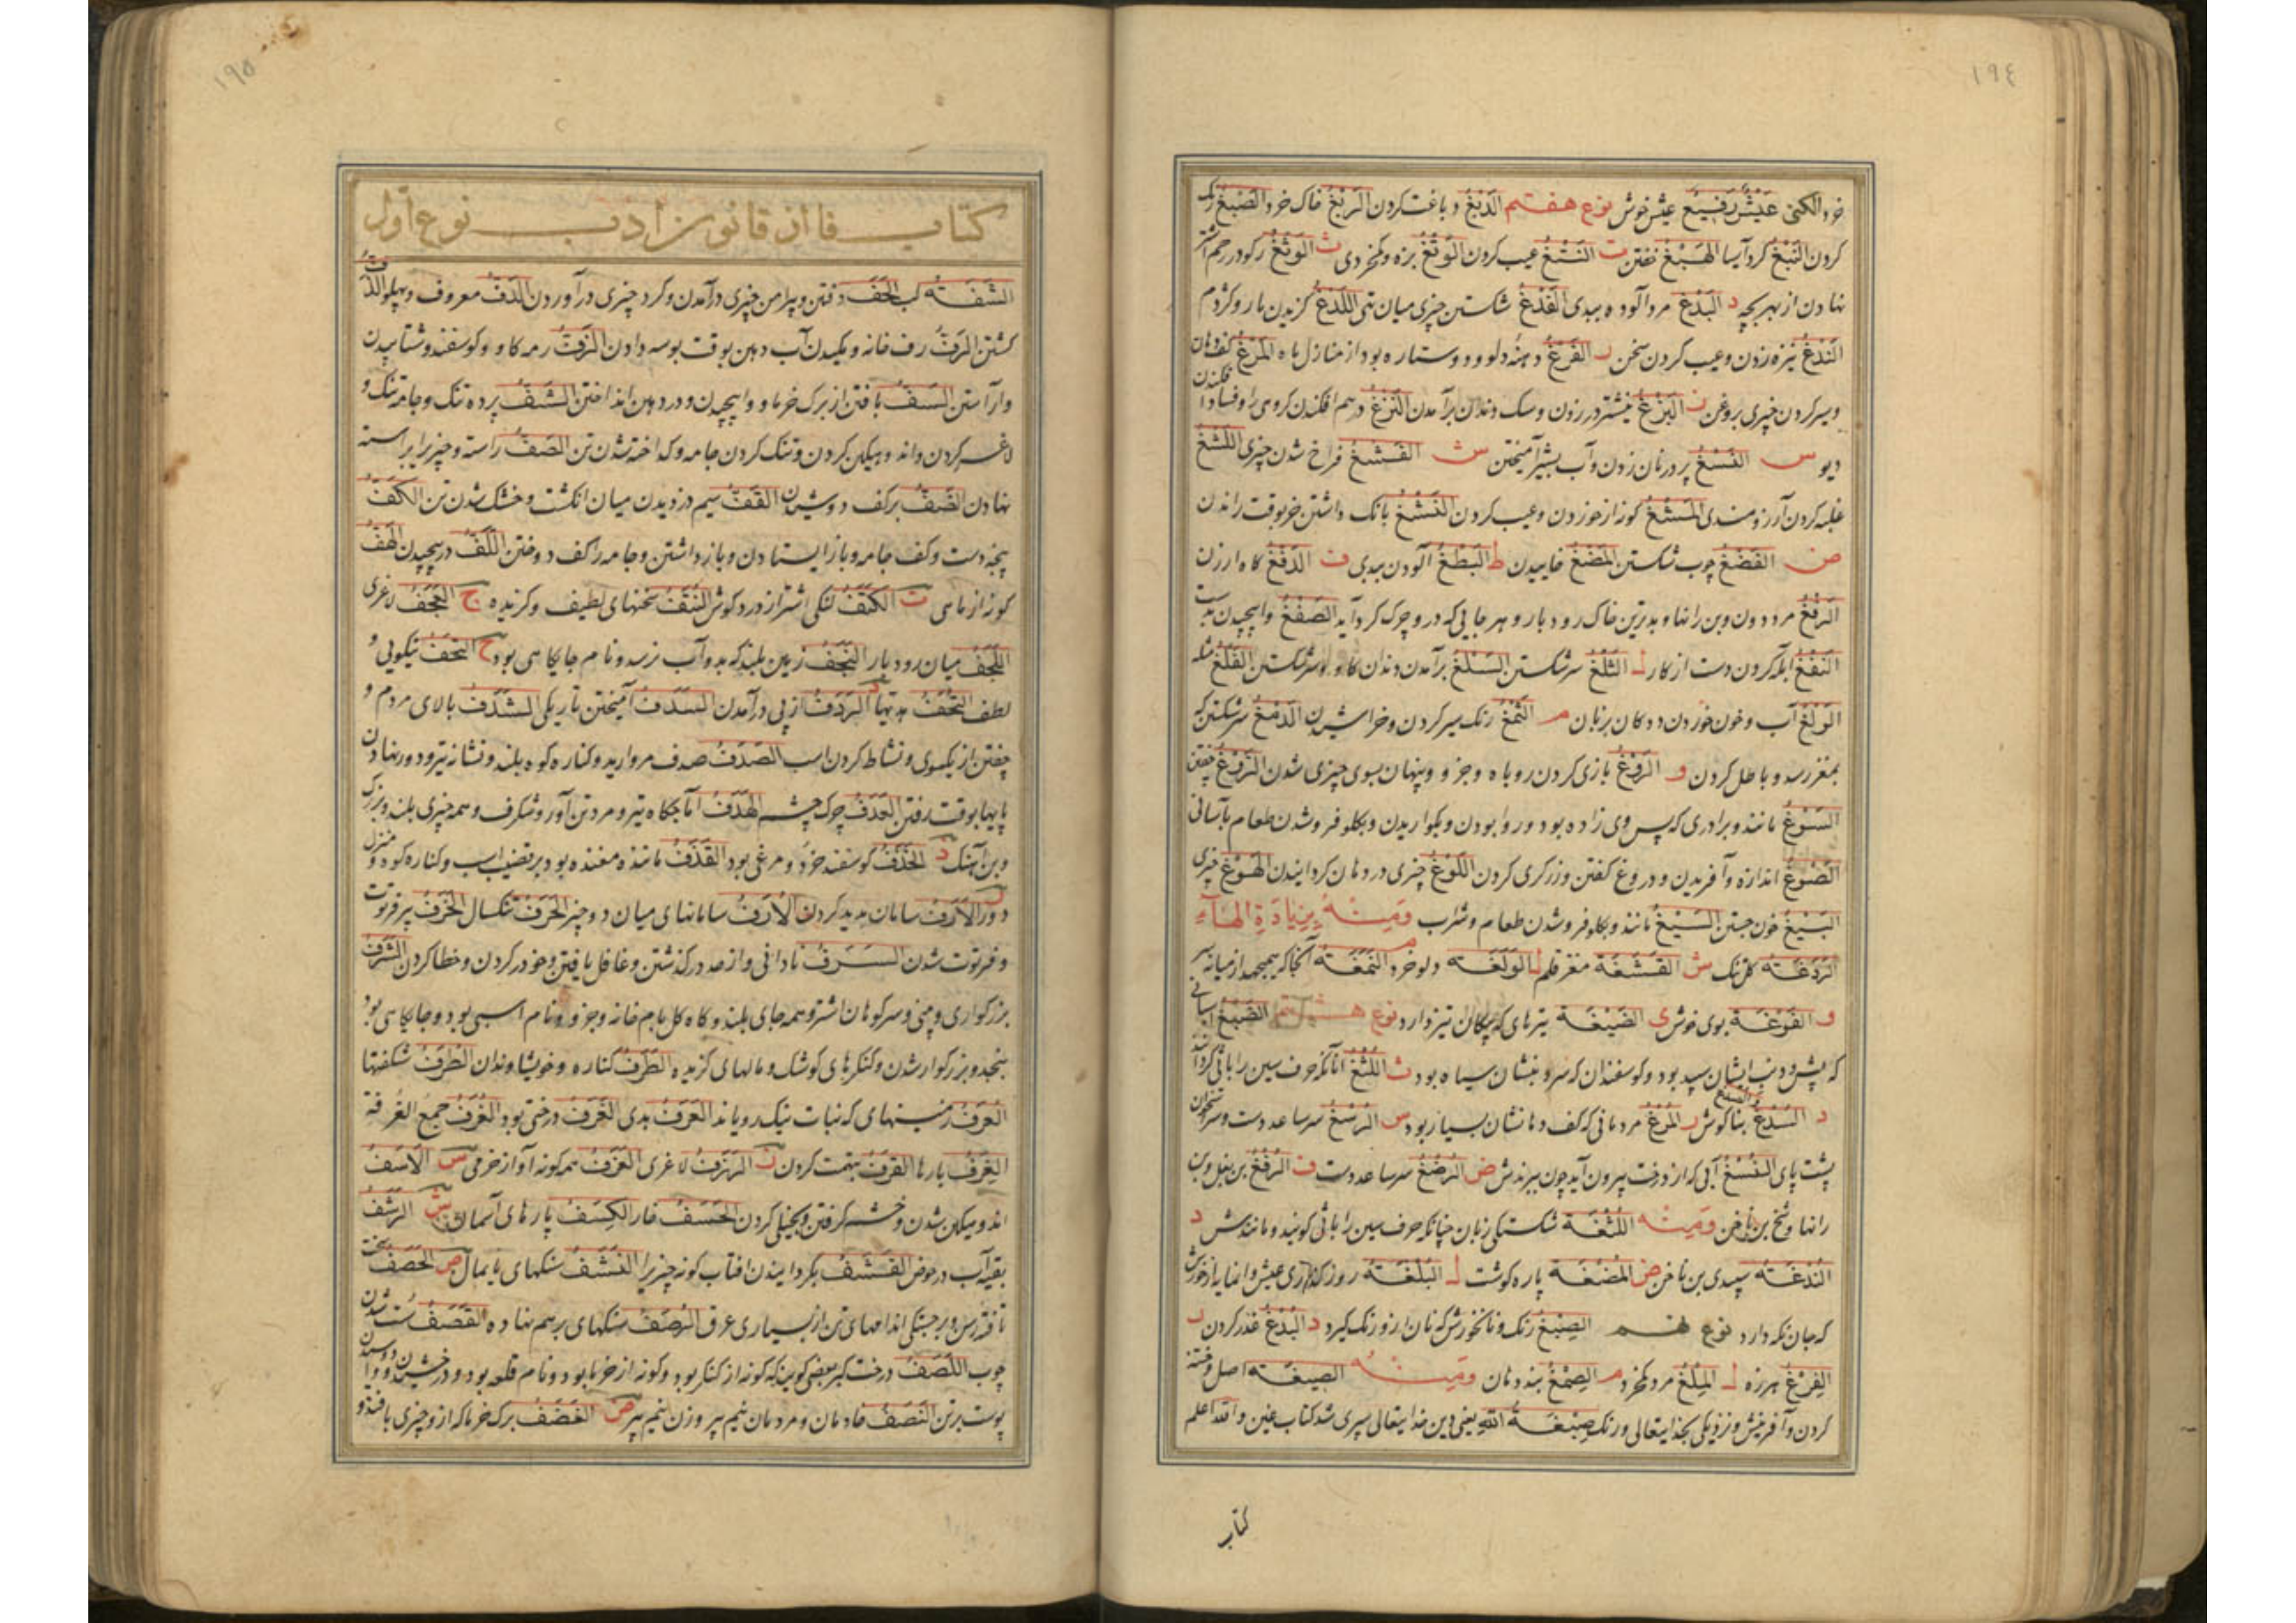 ١٩٤
خرد الکنی عَیْشٌ رَفِیغٌ عیش خوش نوع هفتم الدَبْغُ دباغت کردن الرَبْغُ خاک خرد الصَبْغُ رنک
کردن النَبْغُ کرد آسیا الهَبْغُ خفتن ت النَتْغُ عیب کردن الوَتَغُ بزه و کم خردی ث الوَثْغُ رکو در رحم اشتر
نهادن از بهر بچه د البَدَغُ مرد آلوده ببدی الفَدْغُ شکستن چیزی میان تهی اللَدْغُ کزیدن مار و کژدم
النَدْغُ نیزه زدن و عیب کردن سخن ر الفَرْغُ دهنهٔ دلو و دو ستاره بود از منازل ماه المَرْغُ کف دهان
و سیر کردن چیزی بروغن ز البَزْغُ نیشتر در زدن و سک دندان برآمدن النَزْغُ در هم افکندن کروهی را و فساد افکندن
دیو س النَسْغُ پر در نان زدن و آب بشیر آمیختن ش الفَشْغُ فراخ شدن چیزی اللَشْغُ
غلبه کردن آرزومندی المَشْغُ کونه از خوردن و عیب کردن النَشْغُ بانک داشتن خر بوقت راندن
ض الفَضْغُ چوب شکستن المَضْغُ خاییدن ط البَطَغُ آلودن ببدی ف الدَفْغُ کاه ارزن
الرَفْغُ مرد دون و بن رانها و بدترین خاک رودبار و هر جایی که درو چرک کرد آید الصَفْغُ واپیچیدن بدست
النَفْغُ آبله کردن دست از کار ل الثَلْغُ سر شکستن السَلْغُ برآمدن دندان کاو و سر شکستن الفَلْغُ مثله
الوَلْغُ آب و خون خوردن ددکان بزبان م الثَمْغُ رنک سیر کردن و خراشیدن الدَمْغُ سر شکستن که
بمغز رسد و باطل کردن و الرَوْغُ بازی کردن روباه و جزو و پنهان بسوی چیزی شدن الزَوْغُ چفتن
السَوْغُ مانند و برادری که پس وی زاده بود و روا بودن و بکواریدن و بکلو فرو شدن طعام بآسانی
الصَوْغُ اندازه و آفریدن و دروغ کفتن و زرکری کردن اللَوْغُ چیزی در دهان کردانیدن الهَوْغُ چیزی
البَیْغُ خون جستن السَیْغُ مانند و بکلو فرو شدن طعام و شراب وَمِنْهُ بِزِیَادَةِ الهَآءِ
الرَدَغَه کل تنک ش القَشْغَه مغز قلم ل الوَلْغَه دلو خرد م النَمَغَه آنجا که میجهد از میانه سر
و الفَوْغَه بوی خوش ی الصَیْغَه تیرهای که پیکان تیز دارد نوع هشتم الصُبْغُ اسبانی
که پیش و دنب ایشان سپید بود و کوسفندان که سر و نبشان سیاه بود ث اللُثْغُ آنانکه حرف سین را با ثی کردانند
د السُدْغُ و الصُدْغُ بناکوش ر المُرْغُ مردمانی که کف دهانشان بسیار بود س الرُسْغُ سر ساعد دست و سر استخوان
پشت پای النُسْغُ آبی که از درخت بیرون آید چون ببرندش ض الرُضْغُ سر ساعد دست ف الرُفْغُ بن بغل و بن
رانها و شخ بن ناخن وَمِنْهُ اللُثْغَه شکستکی زبان چنانکه حرف سین را با ثی کویند و مانندش د
النُدْغَه سپیدی بن ناخن ض المُضْغَه پاره کوشت ل البُلْغَه روز کذاری عیش و آنمایه از خورش
که جان نکه دارد نوع نهم الصِبْغُ رنک و نانخورش که نان ازو رنک کیرد د البِدْغُ قذر کردن ر
الفِرْغُ هرزه ل المِلْغُ مرد کم خرد م الصِمْغُ بند دهان وَمِنْهُ الصِیغَه اصل و خفته
کردن و آفرینش و نزدیکی بخدایتعالی و رنک صِبْغَةُ اللهِ یعنی دین خدایتعالی سپری شد کتاب غین والله اعلم
کتاب
١٩٥
کتاب فا از قانون ادب نوع اول
الشَفَه لب الحَفَفُ رفتن و پیرامن چیزی درآمدن و کرد چیزی درآوردن الدَفُّ معروف و پهلو الذَفُّ
کشتن الرَفُّ رف خانه و مکیدن آب دهن بوقت بوسه دادن الزَفُّ رمه کاو و کوسفند و شتابیدن
و آراستن السَفُّ بافتن از برک خرما و واپیچیدن و در دهن انداختن الشَفُّ پرده تنک و جامه تنک و
لاغر کردن و اندوهکین کردن و تنک کردن جامه و کداخته شدن تن الصَفُّ راسته و چیز برابر راسته
نهادن الضَفُّ بر کف دوشیدن القَفُّ سیم دزدیدن میان انکشت و خشک شدن تن الکَفُّ
پنجه دست و کف جامه و باز ایستادن و باز داشتن و جامه را کف دوختن اللَفُّ در پیچیدن الهَفُّ
کونه از ماهی ت الکَتَفُ لنکی اشتر از درد کوش النُتَفُ سخنهای لطیف و کزیده ج العَجَفُ لاغری
اللَجَفُ میان رودبار النَجَفُ زمین بلند که بدو آب نرسد و نام جایکاهی بود ح التَحَفُ نیکویی و
لطف التُحَفُ هدیتها د الرَدَفُ از پی درآمدن السَدَفُ آمیختن تاریکی الشَدَفُ بالای مردم و
چفتن از یکسوی و نشاط کردن اسب الصَدَفُ صدف مروارید و کناره کوه بلند و نشانه تیر و دور نهادن
پایها بوقت رفتن الغَدَفُ چوک چشم الهَدَفُ آماجکاه تیر و مرد تن آور و شکرف و همه چیزی بلند و بزرک
و بن آهنک ذ الحَذَفُ کوسفند خرد و مرغی بود القَذَفُ ماننده مغنده بود بر قضیب اسب و کناره کوه و منزل
دور ر الاَرَفُ سامان پدید کردن الاُرَفُ سامانهای میان دو چیز الحَرَفُ تنکسال الخَرَفُ پیر فرتوت
و فرتوت شدن السَرَفُ نادانی و از حد در کذشتن و غافل یافتن و خو در کردن و خطا کردن الشَرَفُ
بزرکواری و منی و سر کوهان اشتر و همه جای بلند و کاه کل بام خانه و جزو و نام اسبی بود و جایکاهی بود
بنجد و بزرکوار شدن و کنکرهای کوشک و مالهای کزیده الطَرَفُ کناره و خویشاوندان الطُرَفُ شکفتها
العُرَفُ زمینهای که نبات نیک رویاند العَرَفُ بدی الغَرَفُ درختی بود الغُرَفُ جمع الغُرفة
الغِرَفُ بارها القَرَفُ بتهمت کردن ز الهَزَفُ لاغری العَزَفُ همه کونه آواز خرمی س الاَسَفُ
اندوهکین شدن و خشم کرفتن و بخیلی کردن الحَسَفُ خار الکِسَفُ پارهای آسمان ش الرَشَفُ
بقیه آب در حوض القَشَفُ بکردانیدن آفتاب کونه چیز را النَشَفُ سنکهای پایمال ص الحَصَفُ سخت
تافته رسن و برجستکی اندامهای تن از بسیاری عرق الرَصَفُ سنکهای بر هم نهاده القَصَفُ سست شدن
چوب اللَصَفُ درخت کبر بعضی کویند که کونه از کنکر بود و کونه از خرما بود و نام قلعه بود و درخشیدن و دوسیدن
پوست بر تن النَصَفُ خادمان و مردمان نیم پیر و زن نیم پیر ض الغَضَفُ برک خرما که ازو چیزی بافند و